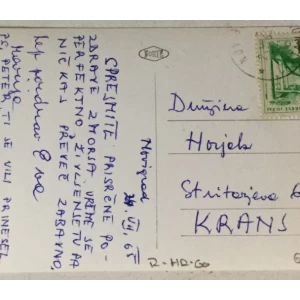 Novigrad
24. VII. 65
SPREJMITE PRISRČNE PO-
ZDRAVE Z MORJA. VREME SE
PERFEKTNO, ŽIVLJENJE TU PA
NIČ KAJ PREVEČ ZABAVNO.
Lep pozdrav Eva
Marija
PS. PETER, TI SE VILI PRINESEL
Družina
Horjak
Stritarjeva 6
KRANJ
R-HR-GO